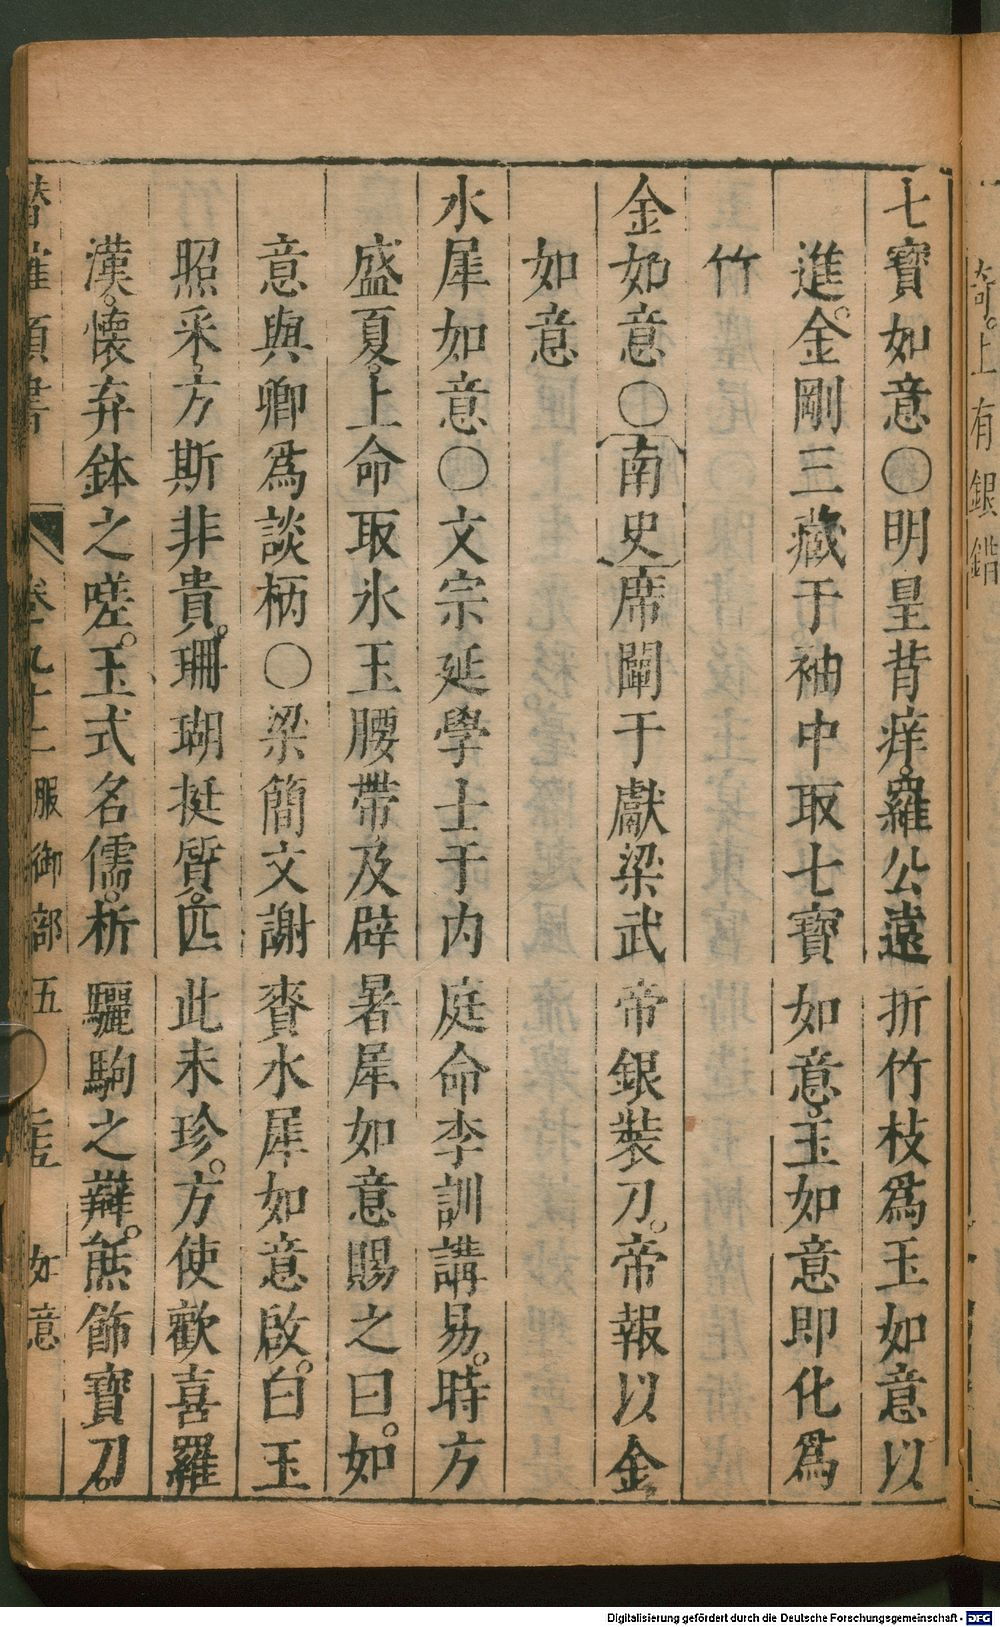 奇。上有銀鐕
七寶如意○明皇背痒。羅公遠折竹枝爲玉如意以
進。金剛三藏于袖中取七寶如意。玉如意即化爲
竹
金如意○南史席闡于獻梁武帝銀裝刀。帝報以金
如意
水犀如意○文宗延學士于内庭命李訓講易。時方
盛夏。上命取氷玉腰帶及辟暑犀如意賜之曰。如
意與卿爲談柄○梁簡文謝賚水犀如意啟。白玉
照采。方斯非貴。珊瑚挺質。匹此未珍。方使歡喜羅
漢。懐弃鉢之嗟。玉式名儒。析驪駒之辯。熊飾寶刀。
潛確類書 卷九十二 服御部五 如意
Digitalisierung gefördert durch die Deutsche Forschungsgemeinschaft - DFG